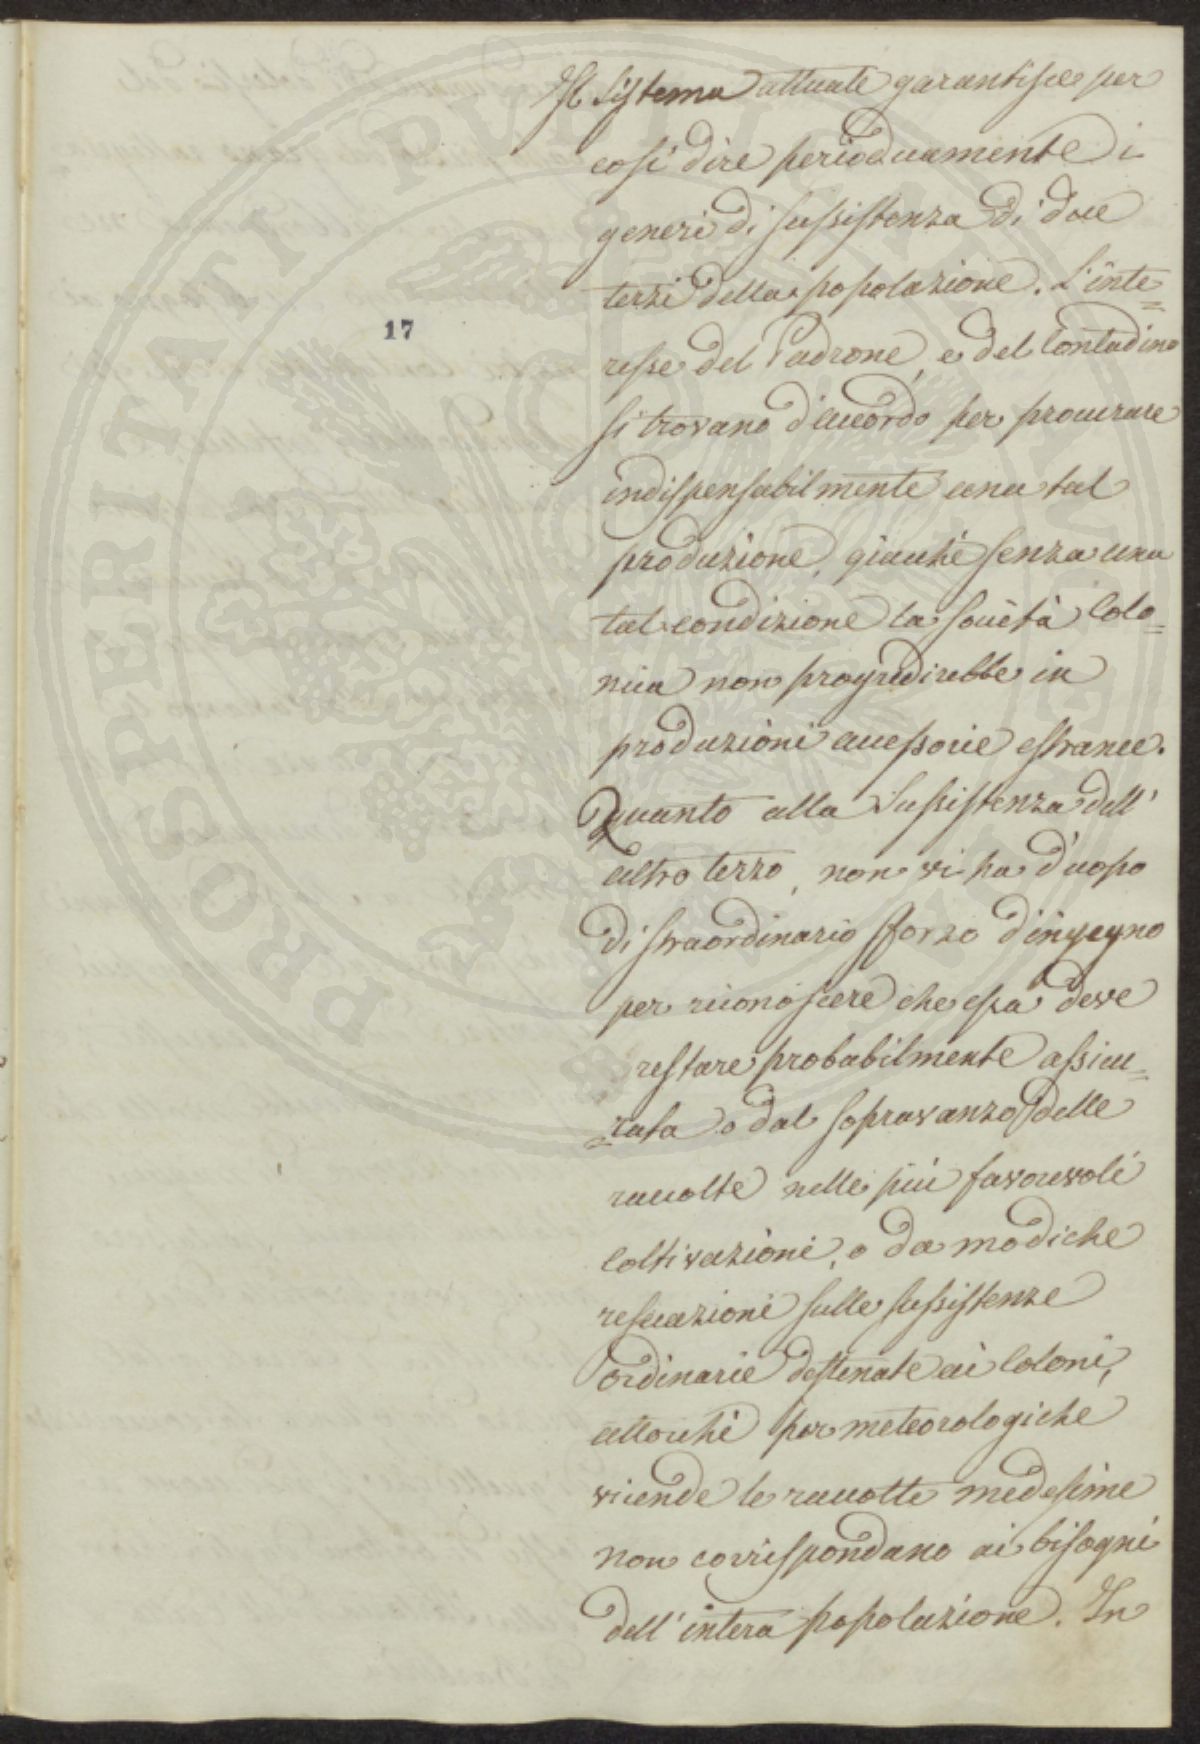 Il sistema attuale garantisce per
così dire perioducamente i
generi di sussistenza di due
terzi della popolazione. L'inte=
resse del Padrone, e del Contadino
si trovano d'accordo per procurare
indispensabilmente una tal
produzione, giacchè senza una
tal condizione la società Colo=
nica non progredirebbe in
produzioni accessorie estranee.
Quanto alla Sussistenza dell'
altro terzo, non vi ha d'uopo
di straordinario sforzo d'ingegno
per riconoscere che essa deve
restare probabilmente assicu=
=rata o dal sopravanzo delle
raccolte nelle più favorevoli
Coltivazioni, o da modiche
resecazioni sulle sussistenze
ordinarie destinate ai Coloni,
allorchè per meteorologiche
vicende le raccolte medesime
non corrispondano ai bisogni
dell'intera popolazione. In
17
PROSPERITATI PVBLICAE